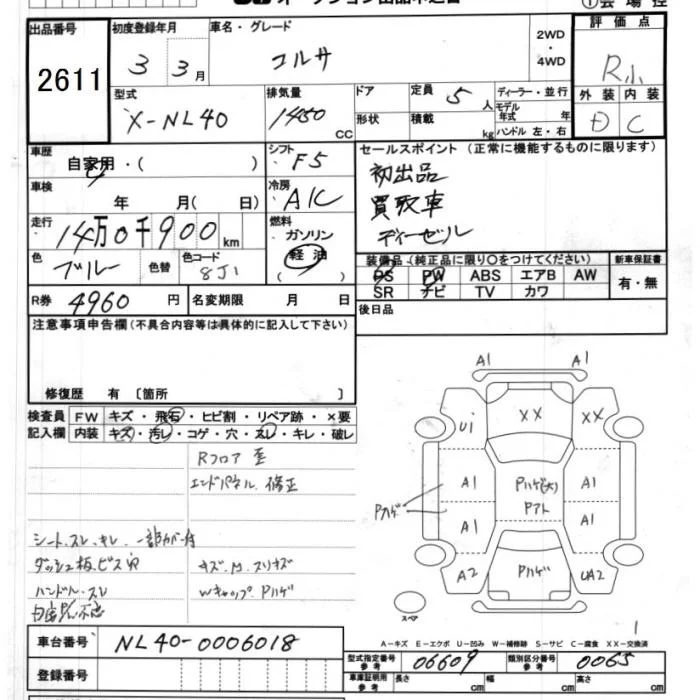 出品番号 初度登録年月 車名・グレード 2WD・4WD 評価点
2611 3 3月 コルサ R小
型式 排気量 ドア 定員 5人 ディーラー・並行 外装 内装
X-NL40 1450 CC 形状 積載 kg モデル年式 年 D C
ハンドル 左・右
車歴 自家用・( ) シフト F5 セールスポイント (正常に機能するものに限ります)
車検 年 月( 日) 冷房 A/C 初出品
走行 14万0千900km 燃料 ガソリン 軽油 ( ) 買取車
ディーゼル
色 ブルー 色替 色コード 8J1 装備品 (純正品に限り○をつけてください) 新車保証書
PS PW ABS エアB AW 有・無
SR ナビ TV カワ
R券 4960円 名変期限 月 日 後日品
注意事項申告欄(不具合内容等は具体的に記入して下さい)
修復歴 有 〔箇所 〕
検査員 FW キズ・飛石・ヒビ割・リペア跡・×要
記入欄 内装 キズ・汚レ・コゲ・穴・スレ・キレ・破レ
Rフロア 歪
エンドパネル 修正
シート.スレ.キレ.
ダッシュ板.ビス穴 キズ.凹.スリキズ
ハンドル.スレ Wキャップ.Pハゲ
A1 A1
U1 XX XX
A1 Pハゲ(大) A1
Pハゲ A1 Pアト A1
A2 Pハゲ UA2
スペア
1
A－キズ E－エクボ U－凹み W－補修跡 S－サビ C－腐食 XX－交換済
車台番号 NL40-0006018
型式指定番号 参考 06609 類別区分番号 参考 0065
登録番号 車庫証明用 参考 長さ cm 幅 cm 高さ cm